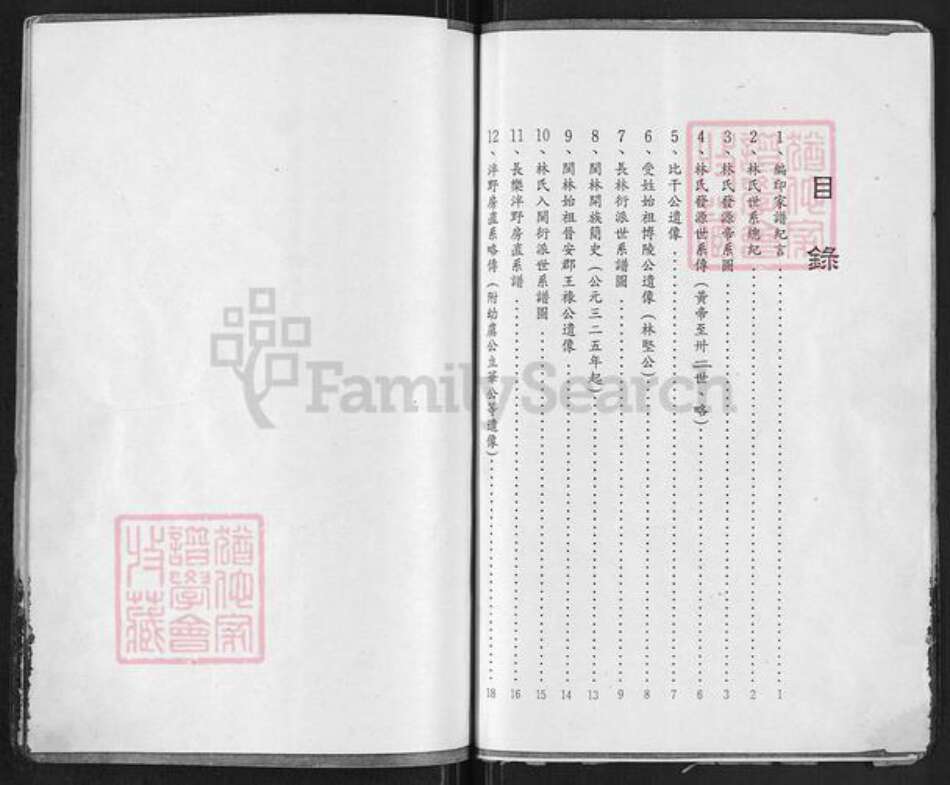 目錄
1、編印家譜紀言 1
2、林氏世系總紀 2
3、林氏發源帝系圖 3
4、林氏發源世系傳(黃帝至卅二世 略) 6
5、比干公遺像 7
6、受姓始祖博陵公遺像(林堅公) 8
7、長林衍派世系譜圖 9
8、閩林開族簡史(公元三二五年起) 13
9、閩林始祖晉安郡王祿公遺像 14
10、林氏入閩衍派世系譜圖 15
11、長樂泮野房直系譜 16
12、泮野房直系略傳(附幼廣公立華公等遺像) 18
猶他家譜學會收藏
猶他家譜學會收藏
FamilySearch